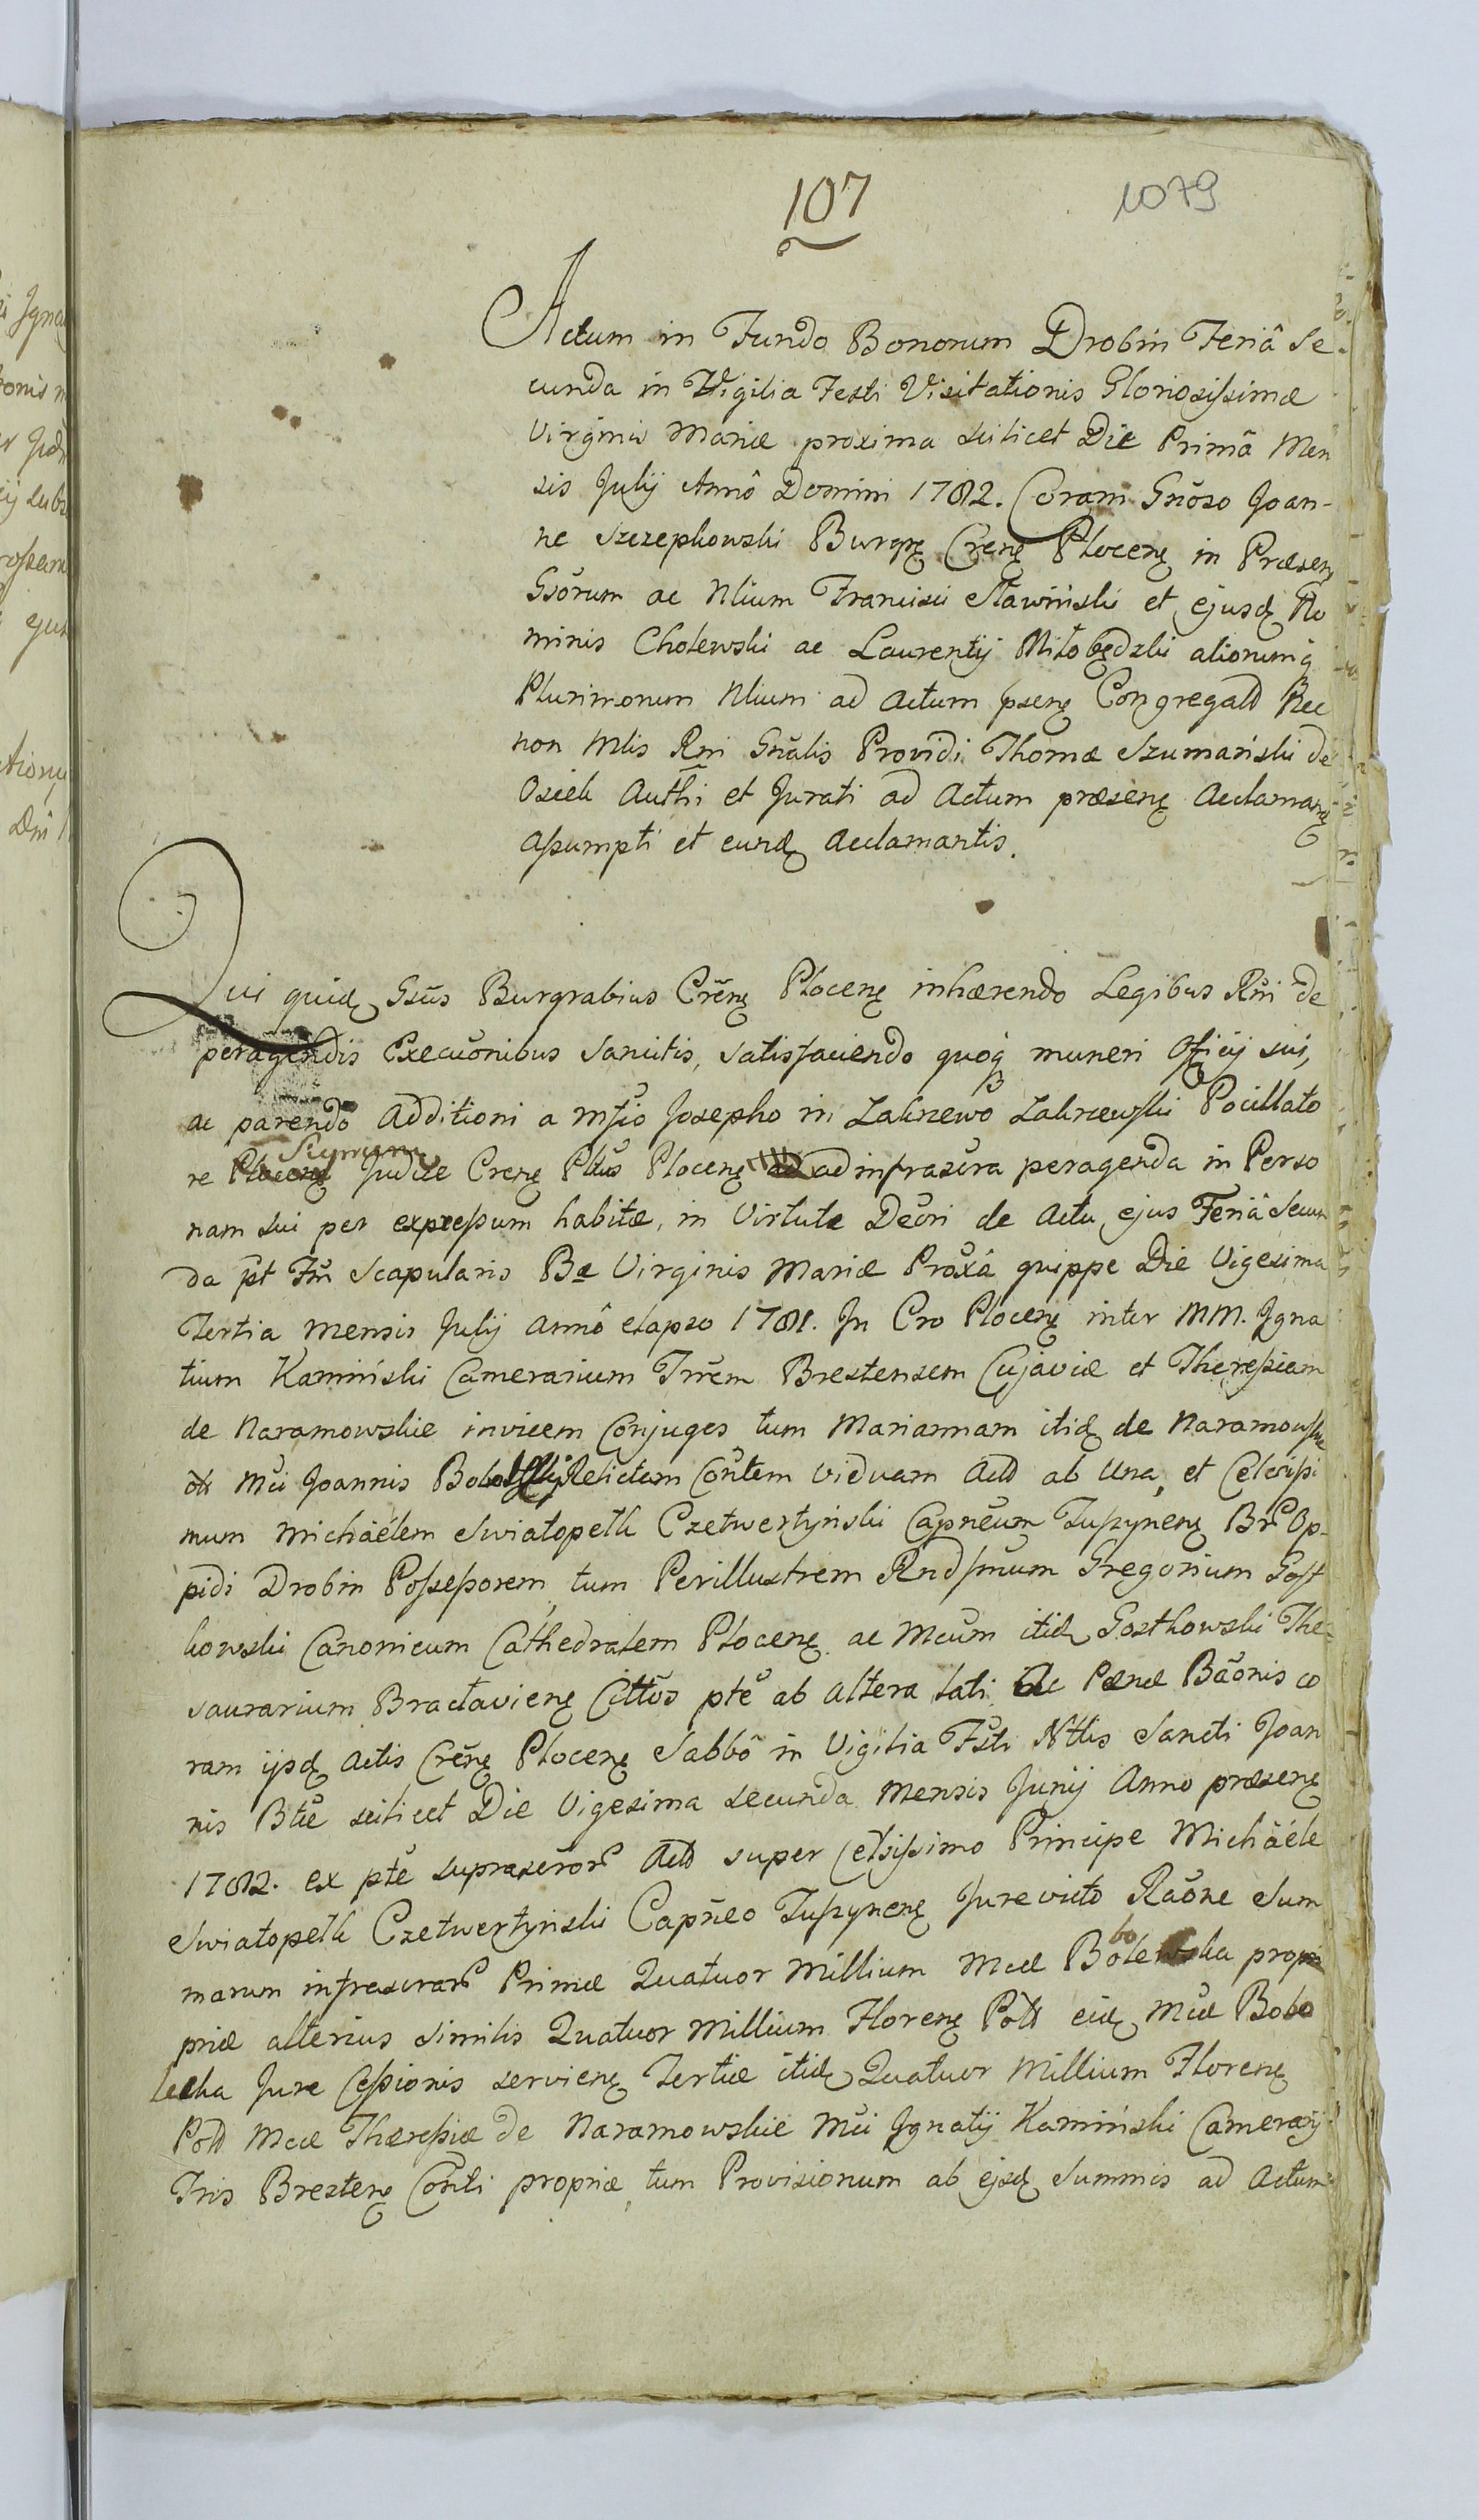 107
1079
Actum in Fundo Bonorum Drobin Feriâ Se-
cunda in Vigilia Festi Visitationis Gloriosissimæ
Virginis Mariæ proxima scilicet Die Primâ Men
sis Julij Annô Domini 1782. Coram Gnõso Joan-
ne Szczepkowski Burgrę Crenę Plocenę in Præsenę
Gsõrum ac Nlium Francisci Sławiński et ejusdę No
minis Cholewski ac Laurentij Miłobędzki aliorumq
Plurimorum Nlium ad Actum psenę Congregatõ Nec
non Mlis Rni Gnãlis Providi Thomæ Szumański de
Osiek Authñi et Jurati ad Actum præsenę Acclamanę
Assumpti et eundę Acclamantis.
Qui quidę Gsũs Burgrabius Crẽnę Plocenę inhærendo Legibus Rñi de
peragendis Execuõnibus sancitis, satisfaciendo quoq muneri Officij sui,
ac parendo Additioni a Mfio Josepho in Zakrzewo Zakrzewski Pocillato
re Judice Crenę Pltus Plocenę ad infrascra peragenda in Perso
nam sui per expressum habitæ, in Virtute Decri de Actu ejus Feriâ Secun
da pt Ftũ Scapularis Bæ Virginis Mariæ Proxâ quippe Die Vigesima
Tertia Mensis Julij Annô elapso 1781. In Cro Plocenę inter MM. Igna
tium Kamiński Camerarium Trrem Brestensem Cujaviæ et Theressiam
de Naramowskie invicem Conjuges tum Mariannam itidę de Naramowskie
olt Mci Joannis Relictam Coñtem viduam Actõ ab Una, et Celsissi
mum Michaëlem Swiatopełk Czetwertyński Capneum Tuszynenę Brõ Op-
pidi Drobin Possessorem, tum Perillustrem Rndssmum Gregorium Gost
kowski Canonicum Cathedralem Plocenę ac Mcum itidę Gostkowski The-
saurarium Bracłavienę Cittõs ptẽ ab altera lati Ac Pænæ Bãonis co
ram ijsdę Actis Crẽnę Plocenę Sabbô in Vigilia Fsti Ntlis Sancti Joan
nis Btæ scilicet Die Vigesima secunda Mensis Junij Anno præsenę
1782. ex ptẽ suprascror Actõ super Celsissimo Principe Michaële
Swiatopełk Czetwertyński Capñeo Tuszynenę Jurevictõ Raõne Sum
marum infrascrar Primæ Quatuor Millium Mcæ
priæ alterius similis Quatuor Millium Florenę Poltõ eidę Mcæ Bobo
lecka Jure Cessionis servienę Tertiæ itidę Quatuor Millium Florenę
Poltõ Mcæ Theressiæ de Naramowskie Mci Ignatij Kamiński Camerarij
Tris Brestenę Coñti propriæ, tum Provisionum ab ejsdę Summis ad Actum